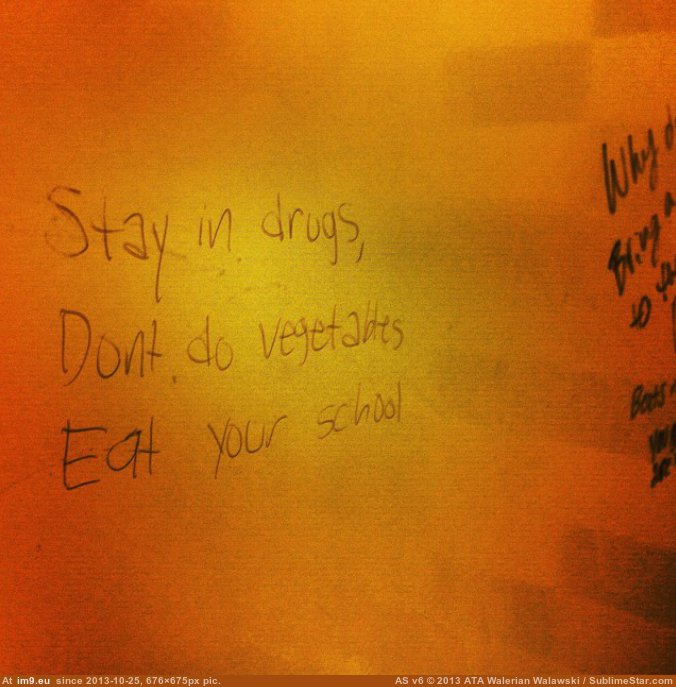 Stay in drugs,
Dont do vegetables
Eat your school
Why
Bring
so
Boots
At im9.eu since 2013-10-25, 676×675px pic.
AS v6 © 2013 ATA Walerian Walawski / SublimeStar.com